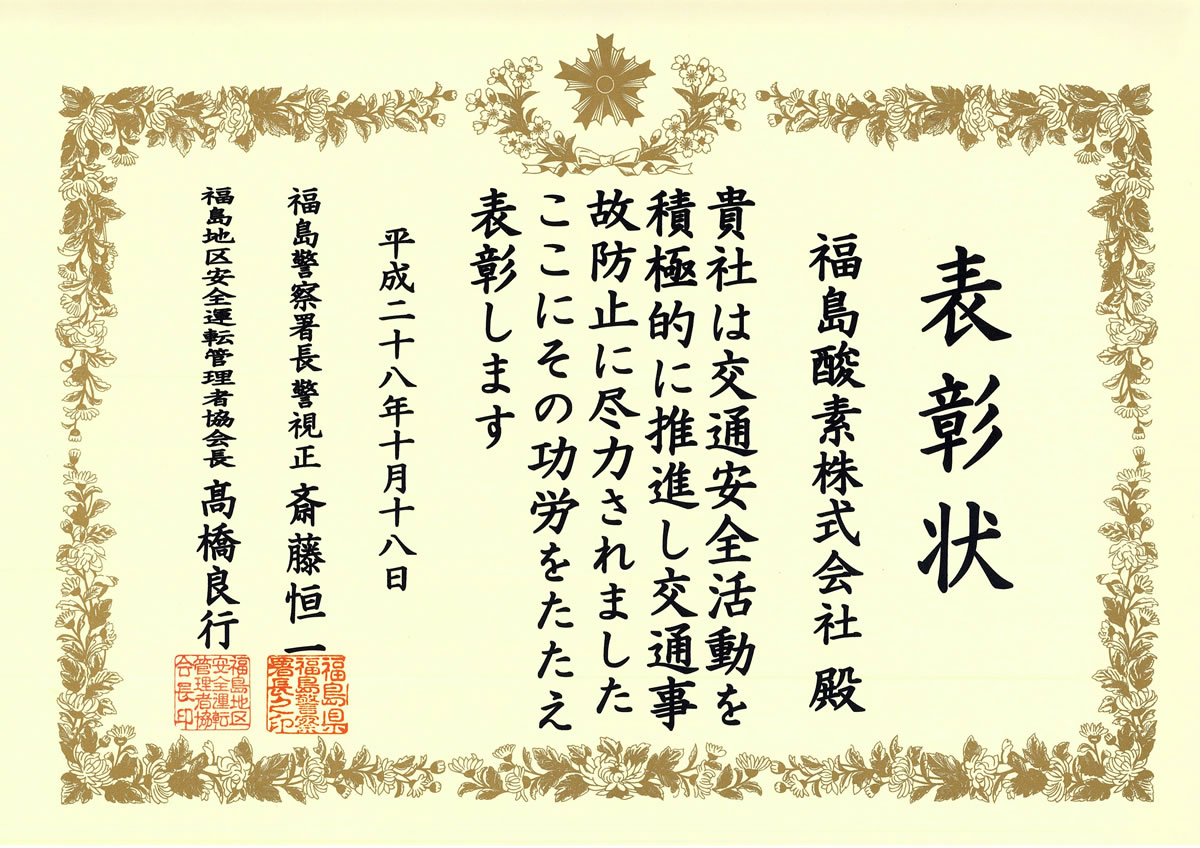 表彰状
福島酸素株式会社 殿
貴社は交通安全活動を
積極的に推進し交通事
故防止に尽力されました
ここにその功労をたたえ
表彰します
平成二十八年十月十八日
福島警察署長 警視正 斎藤恒一
福島県
福島警察
署長之印
福島地区安全運転管理者協会長 髙橋良行
福島地区
安全運転
管理者協
会長印